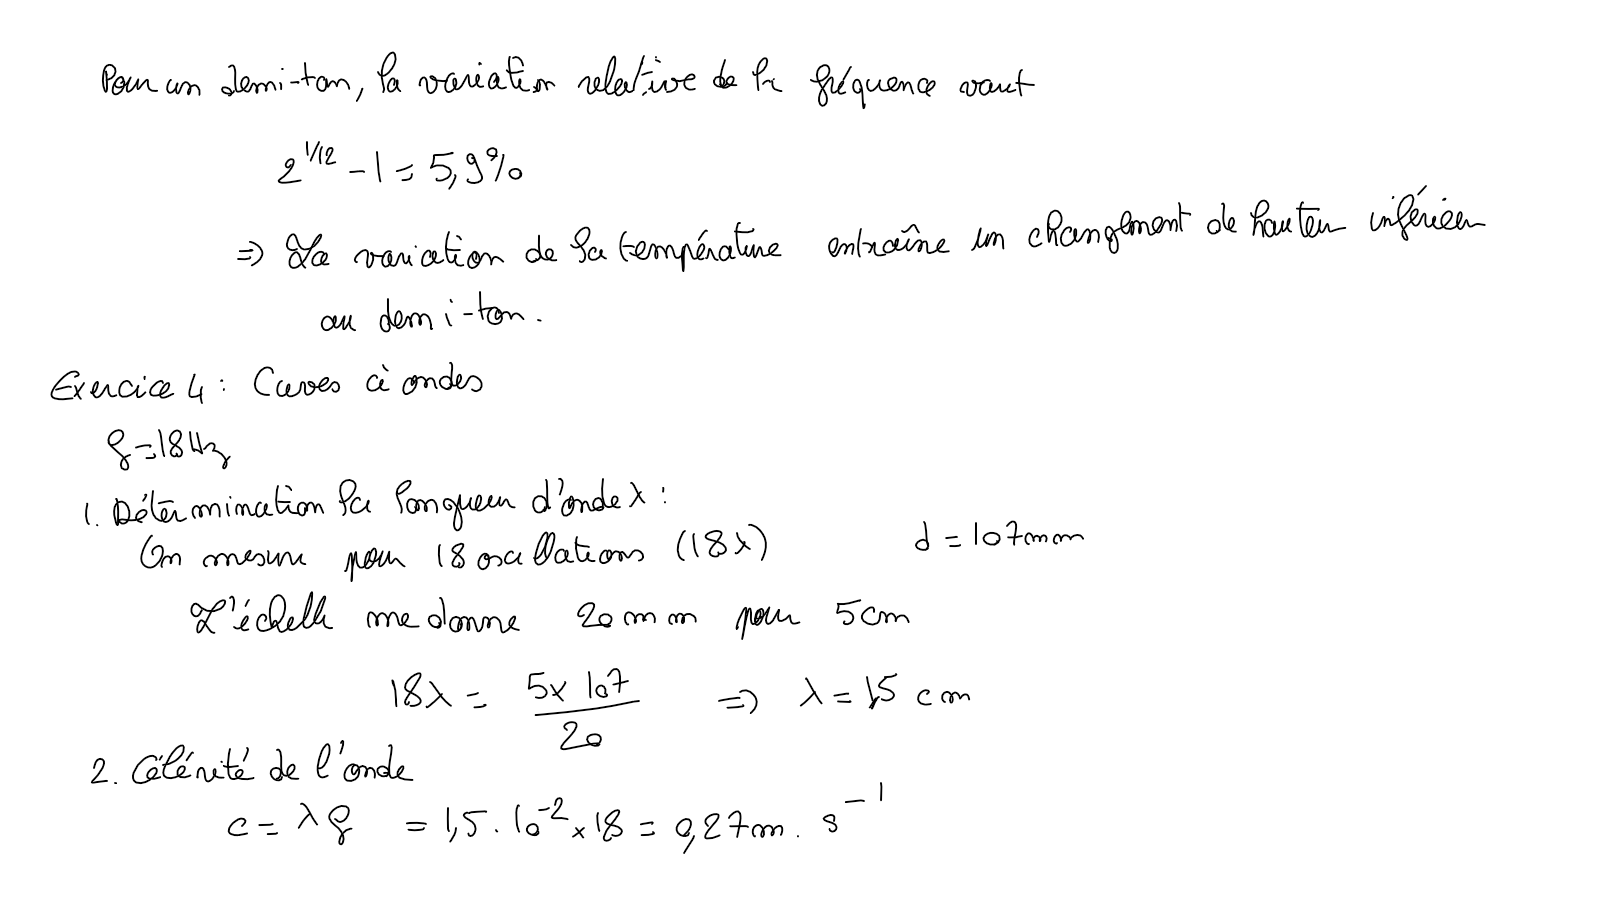 Pour un demi-ton, la variation relative de la fréquence vaut
2^{1/12} - 1 = 5,9%
⇒ La variation de la température entraîne un changement de hauteur inférieur
au demi-ton.
Exercice 4 : Cuves à ondes
f = 18 Hz
1. Détermination la longueur d'onde λ :
On mesure pour 18 oscillations (18λ) d = 107mm
L'échelle me donne 20 mm pour 5cm
18λ = \frac{5 × 107}{20} ⇒ λ = 1,5 cm
2. Célérité de l'onde
c = λf = 1,5 . 10^{-2} × 18 = 0,27 m . s^{-1}